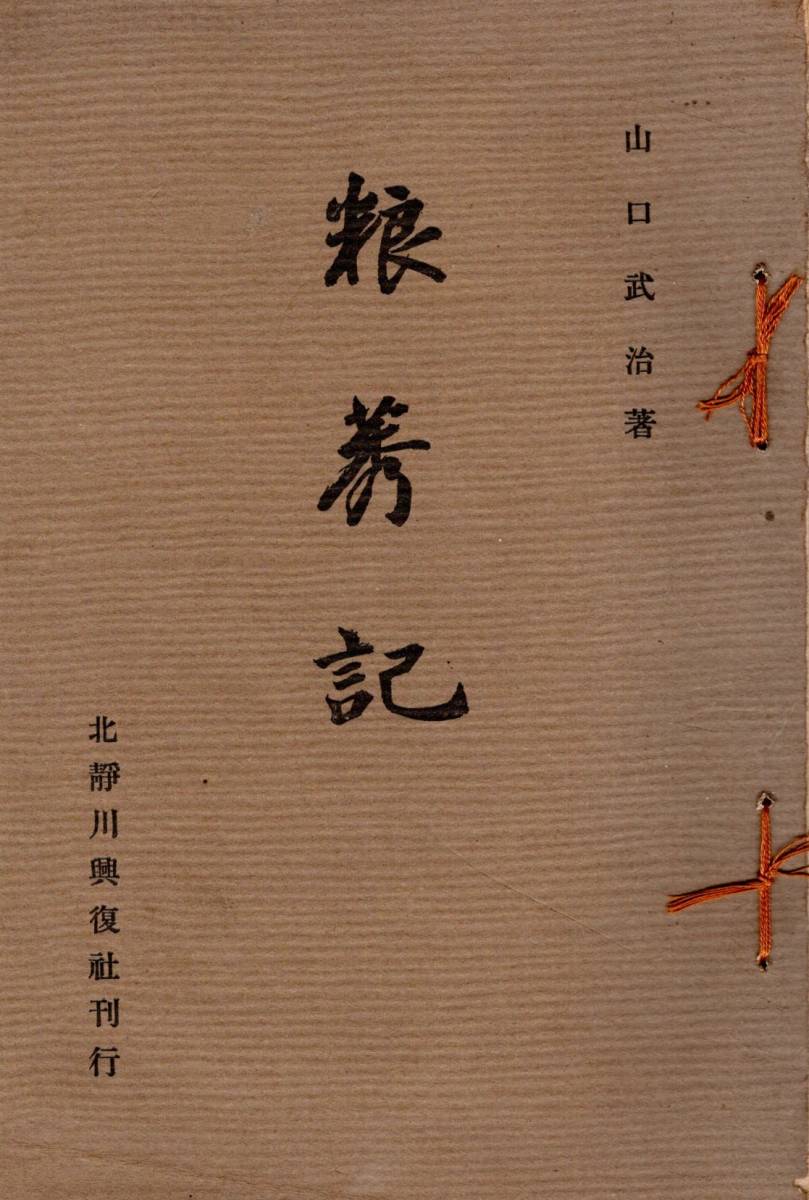 山口武治著
粮莠記
北靜川興復社刊行